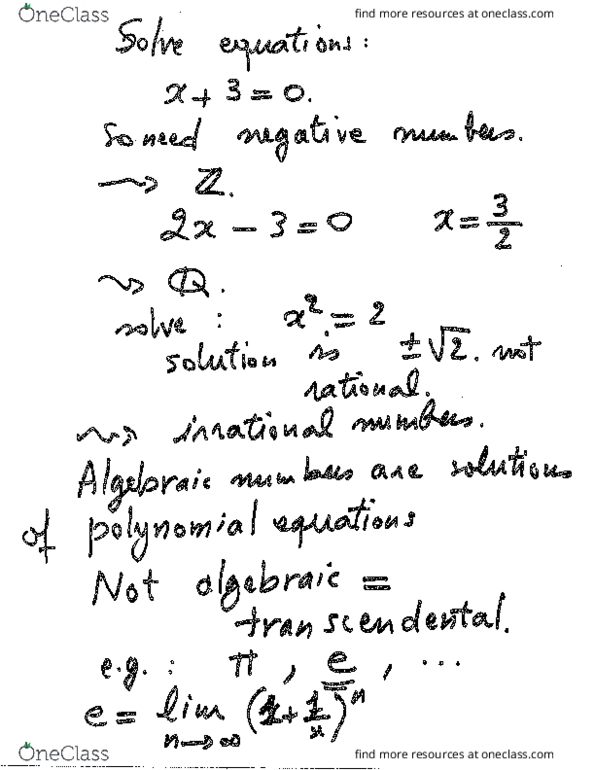 OneClass find more resources at oneclass.com
Solve equations:
x + 3 = 0.
So need negative numbers.
→ ℤ.
2x − 3 = 0 x = 3/2
⇝ ℚ.
solve : x² = 2
solution is ±√2. not
rational.
⇝ irrational numbers.
Algebraic numbers are solutions
of polynomial equations
Not algebraic =
transcendental.
e.g. : π , e , ...
e = lim (1 + 1/n)ⁿ
n→∞
OneClass find more resources at oneclass.com